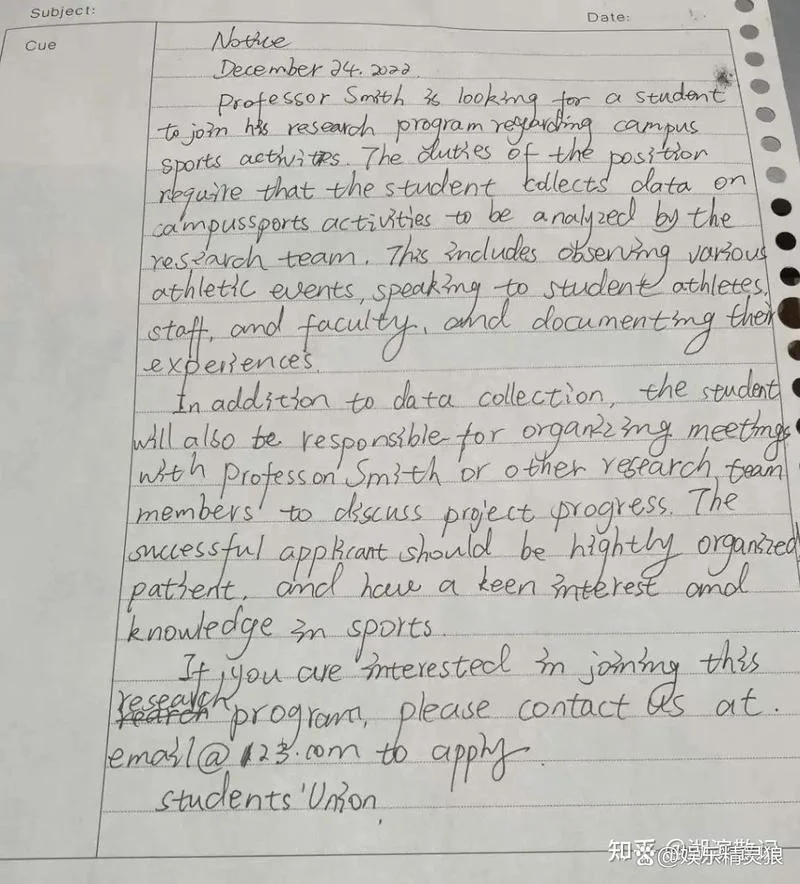 Subject:
Date:
Cue
Notice
December 24.2022.
Professor Smith is looking for a student
to join his research program regarding campus
sports activities. The duties of the position
require that the student collects data on
campussports activities to be analyzed by the
research team. This includes observing various
athletic events, speaking to student athletes,
staff, and faculty, and documenting their
experiences.
In addition to data collection, the student
will also be responsible for organizing meetings
with Professon Smith or other research team
members to discuss project progress. The
successful applicant should be hightly organized
patient, and have a keen interest and
knowledge in sports.
If you are interested in joining this
research
program, please contact us at.
email@123.com to apply.
students' Union.
知乎 @娱乐精灵狼